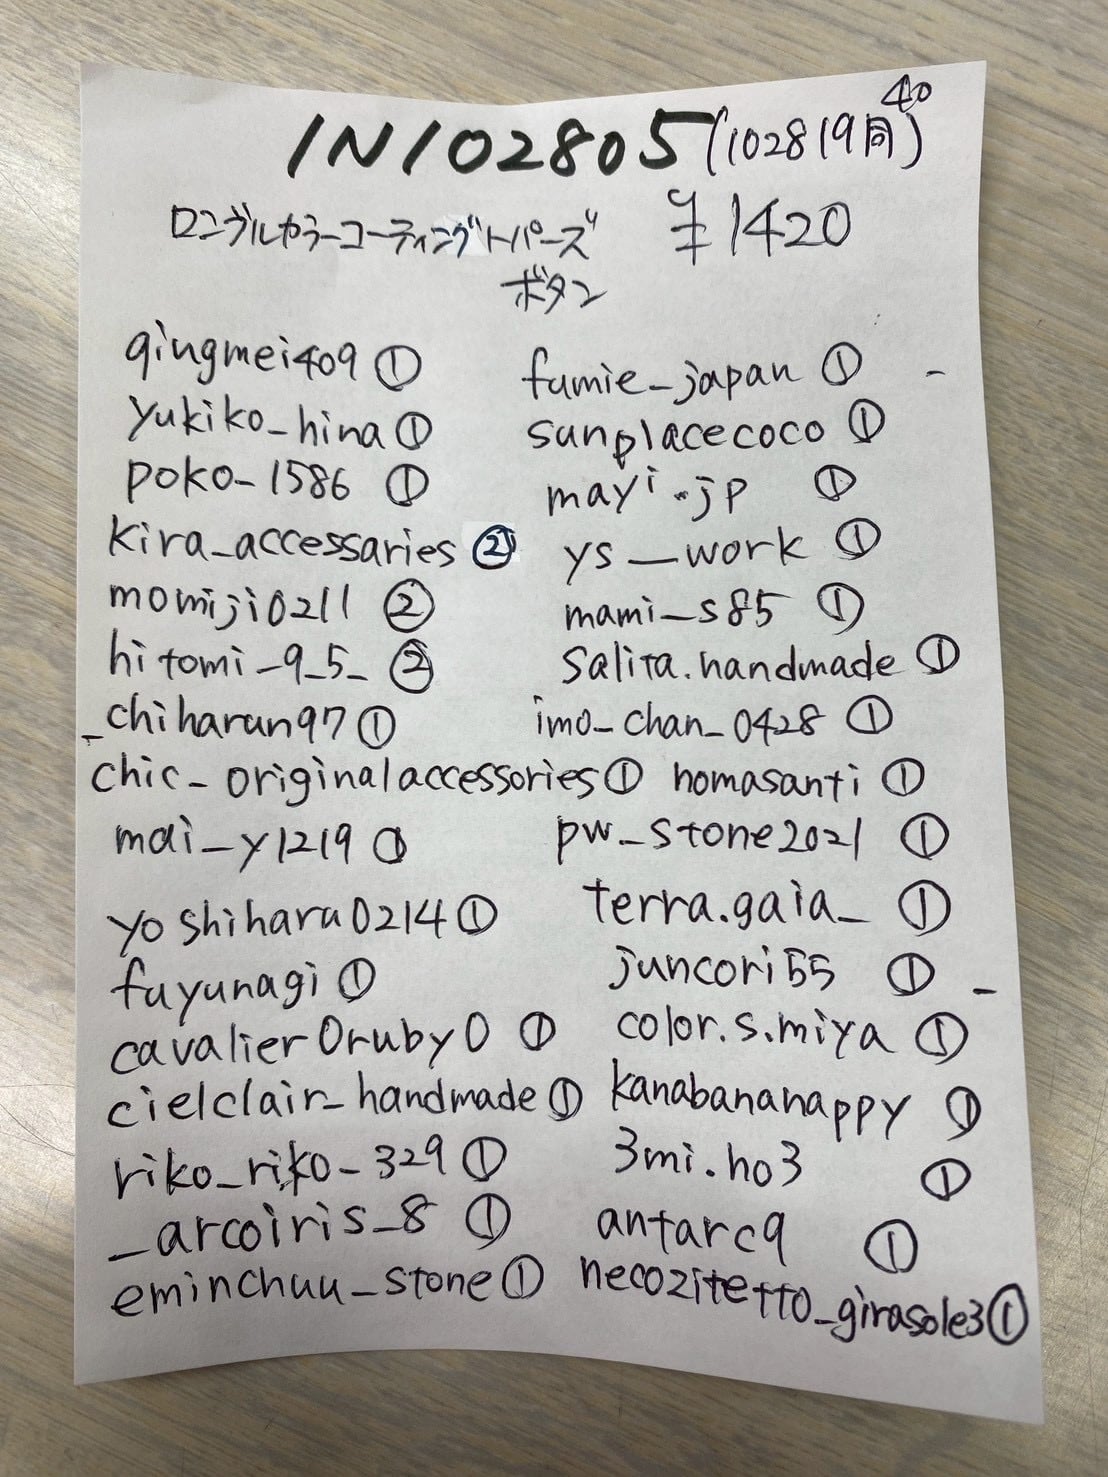 IN102805(102819同)
40
ロンデルカラーコーティングトパーズ ¥1420
ボタン
qingmei409①
yukiko_hina①
poko_1586 ①
kira_accessaries②
momiji0211 ②
hitomi_9_5_ ②
_chiharun97①
chic_originalaccessories①
mai_y1219 ①
yoshiharu0214①
fuyunagi①
cavalier0ruby0 ①
cielclair_handmade①
riko_riko_329 ①
_arcoiris_8 ①
eminchuu_stone①
fumie_japan ①
sunplacecoco ①
mayi.jp ①
ys__work ①
mami_s85 ①
salita.handmade ①
imo_chan_0428 ①
homasanti ①
pw_stone2021 ①
terra.gaia_ ①
juncori55 ①
color.s.miya ①
kanabananappy ①
3mi.ho3 ①
antarc9 ①
necozitetto_girasole3①